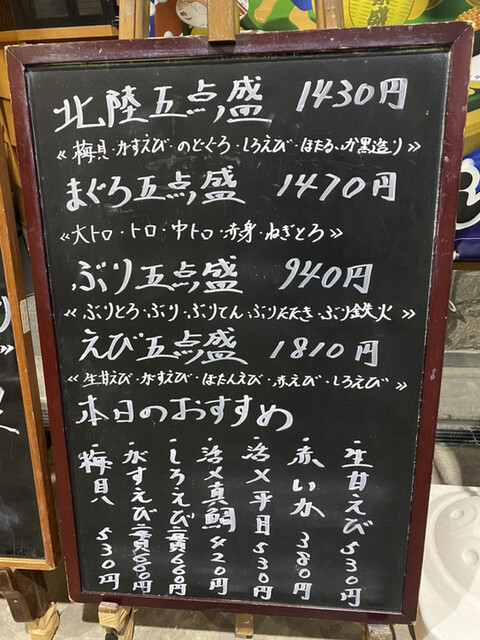 北陸五点盛 1430円
《梅貝・がすえび・のどぐろ・しろえび・ほたるいか黒造り》
まぐろ五点盛 1470円
《大トロ・トロ・中トロ・赤身・ねぎとろ》
ぶり五点盛 940円
《ぶりとろ・ぶり・ぶりてん・ぶりたたき・ぶり鉄火》
えび五点盛 1810円
《生甘えび・がすえび・ぼたんえび・赤えび・しろえび》
本日のおすすめ
・生甘えび530円
・赤いか380円
・活〆平目530円
・活〆真鯛420円
・しろえび二貫660円
・がすえび二貫600円
・梅貝530円